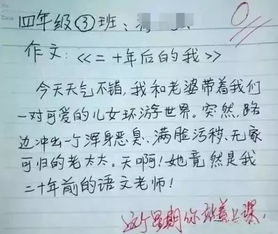 四年级③班:
0
作文:《二十年后的我》
今天天气不错,我和老婆带着我们
一对可爱的儿女环游世界。突然,路
边冲出一个浑身恶臭、满脸污秽、无家
可归的老太太。天啊!她竟然是我
二十年前的语文老师!
这个星期你站着上课。